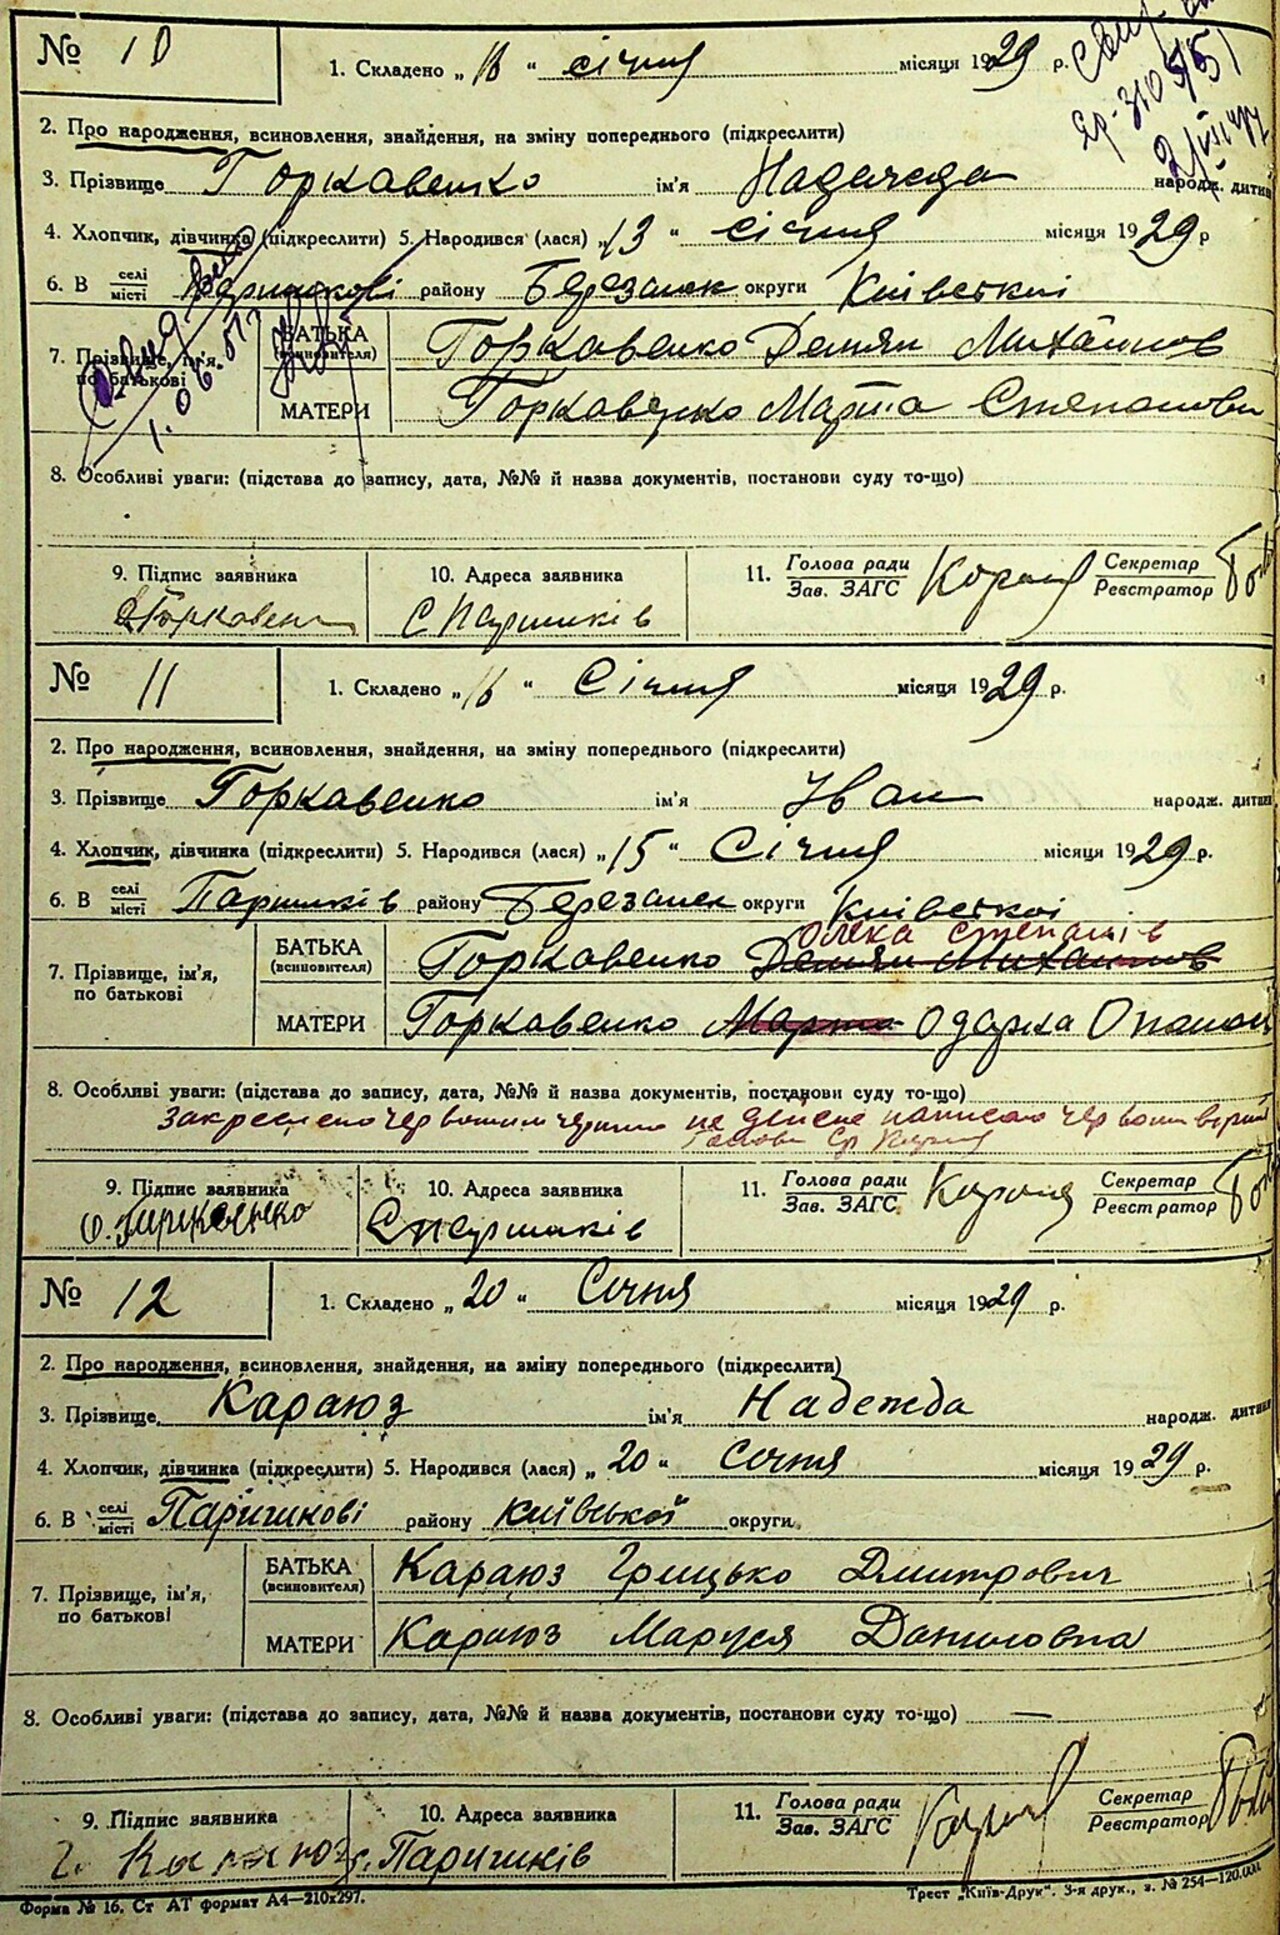 № 10
1. Складено „ 16 “ січня місяця 1929 р.
2. Про народження, всиновлення, знайдення, на зміну попереднього (підкреслити)
3. Прізвище Горкавенко ім'я Надежда народж. дитини
4. Хлопчик, дівчинка (підкреслити) 5. Народився (лася) „ 13 “ січня місяця 1929 р
6. В селі місті Паришкові району Березанск округи Київскої
7. Прізвище, ім'я, по батькові
БАТЬКА (всиновителя) Горкавенко Демян Михайлов
МАТЕРИ Горкавенко Марта Степанови
1. 06. 51
8. Особливі уваги: (підстава до запису, дата, №№ й назва документів, постанови суду то-що)
9. Підпис заявника 10. Адреса заявника 11. Голова ради Зав. ЗАГС Секретар Реєстратор
Горкавен С Паришків
№ 11
1. Складено „ 16 “ Січня місяця 1929 р.
2. Про народження, всиновлення, знайдення, на зміну попереднього (підкреслити)
3. Прізвище Горкавенко ім'я Іван народж. дитини
4. Хлопчик, дівчинка (підкреслити) 5. Народився (лася) „ 15 “ Січня місяця 1929 р.
6. В селі місті Паришків району Березанск округи Київскої
Олека Степанів
7. Прізвище, ім'я, по батькові
БАТЬКА (всиновителя) Горкавенко Демян Михайлов
МАТЕРИ Горкавенко Марта Одарка Опанас
8. Особливі уваги: (підстава до запису, дата, №№ й назва документів, постанови суду то-що)
Закреслено червоним не дійсне написано червоним вірн
Голова
9. Підпис заявника 10. Адреса заявника 11. Голова ради Зав. ЗАГС Секретар Реєстратор
О. Горкавенко С Паришків
№ 12
1. Складено „ 20 “ Січня місяця 1929 р.
2. Про народження, всиновлення, знайдення, на зміну попереднього (підкреслити)
3. Прізвище Караюз ім'я Надежда народж. дитини
4. Хлопчик, дівчинка (підкреслити) 5. Народився (лася) „ 20 “ Січня місяця 1929 р.
6. В селі місті Паришкові району Київської округи
7. Прізвище, ім'я, по батькові
БАТЬКА (всиновителя) Караюз Грицько Дмитрович
МАТЕРИ Караюз Маруся Даниловна
8. Особливі уваги: (підстава до запису, дата, №№ й назва документів, постанови суду то-що) —
9. Підпис заявника 10. Адреса заявника 11. Голова ради Зав. ЗАГС Секретар Реєстратор
Г. Караюз с. Паришків
Форма № 16. Ст АТ формат А4—210х297. Трест „Київ-Друк“. 3-я друк., з. № 254—120.000